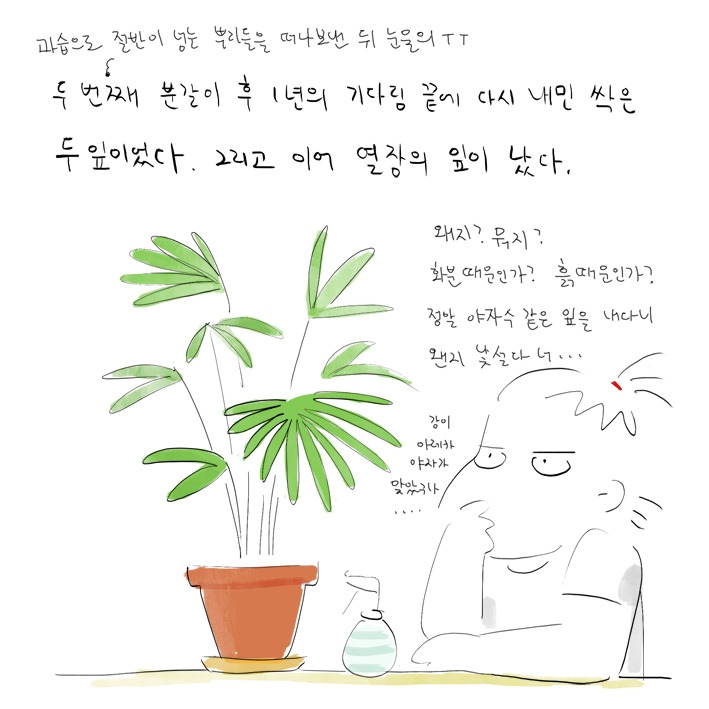 과습으로 절반이 넘는 뿌리들을 떠나보낸 뒤 눈물의 ㅜㅜ
두 번째 분갈이 후 1년의 기다림 끝에 다시 내민 싹은
두 잎이었다. 그리고 이어 열장의 잎이 났다.
왜지? 뭐지?
화분때문인가? 흙때문인가?
정말 야자수 같은 잎을 내다니
왠지 낯설다 너...
감이
아레카
야자가
맞았구나
....